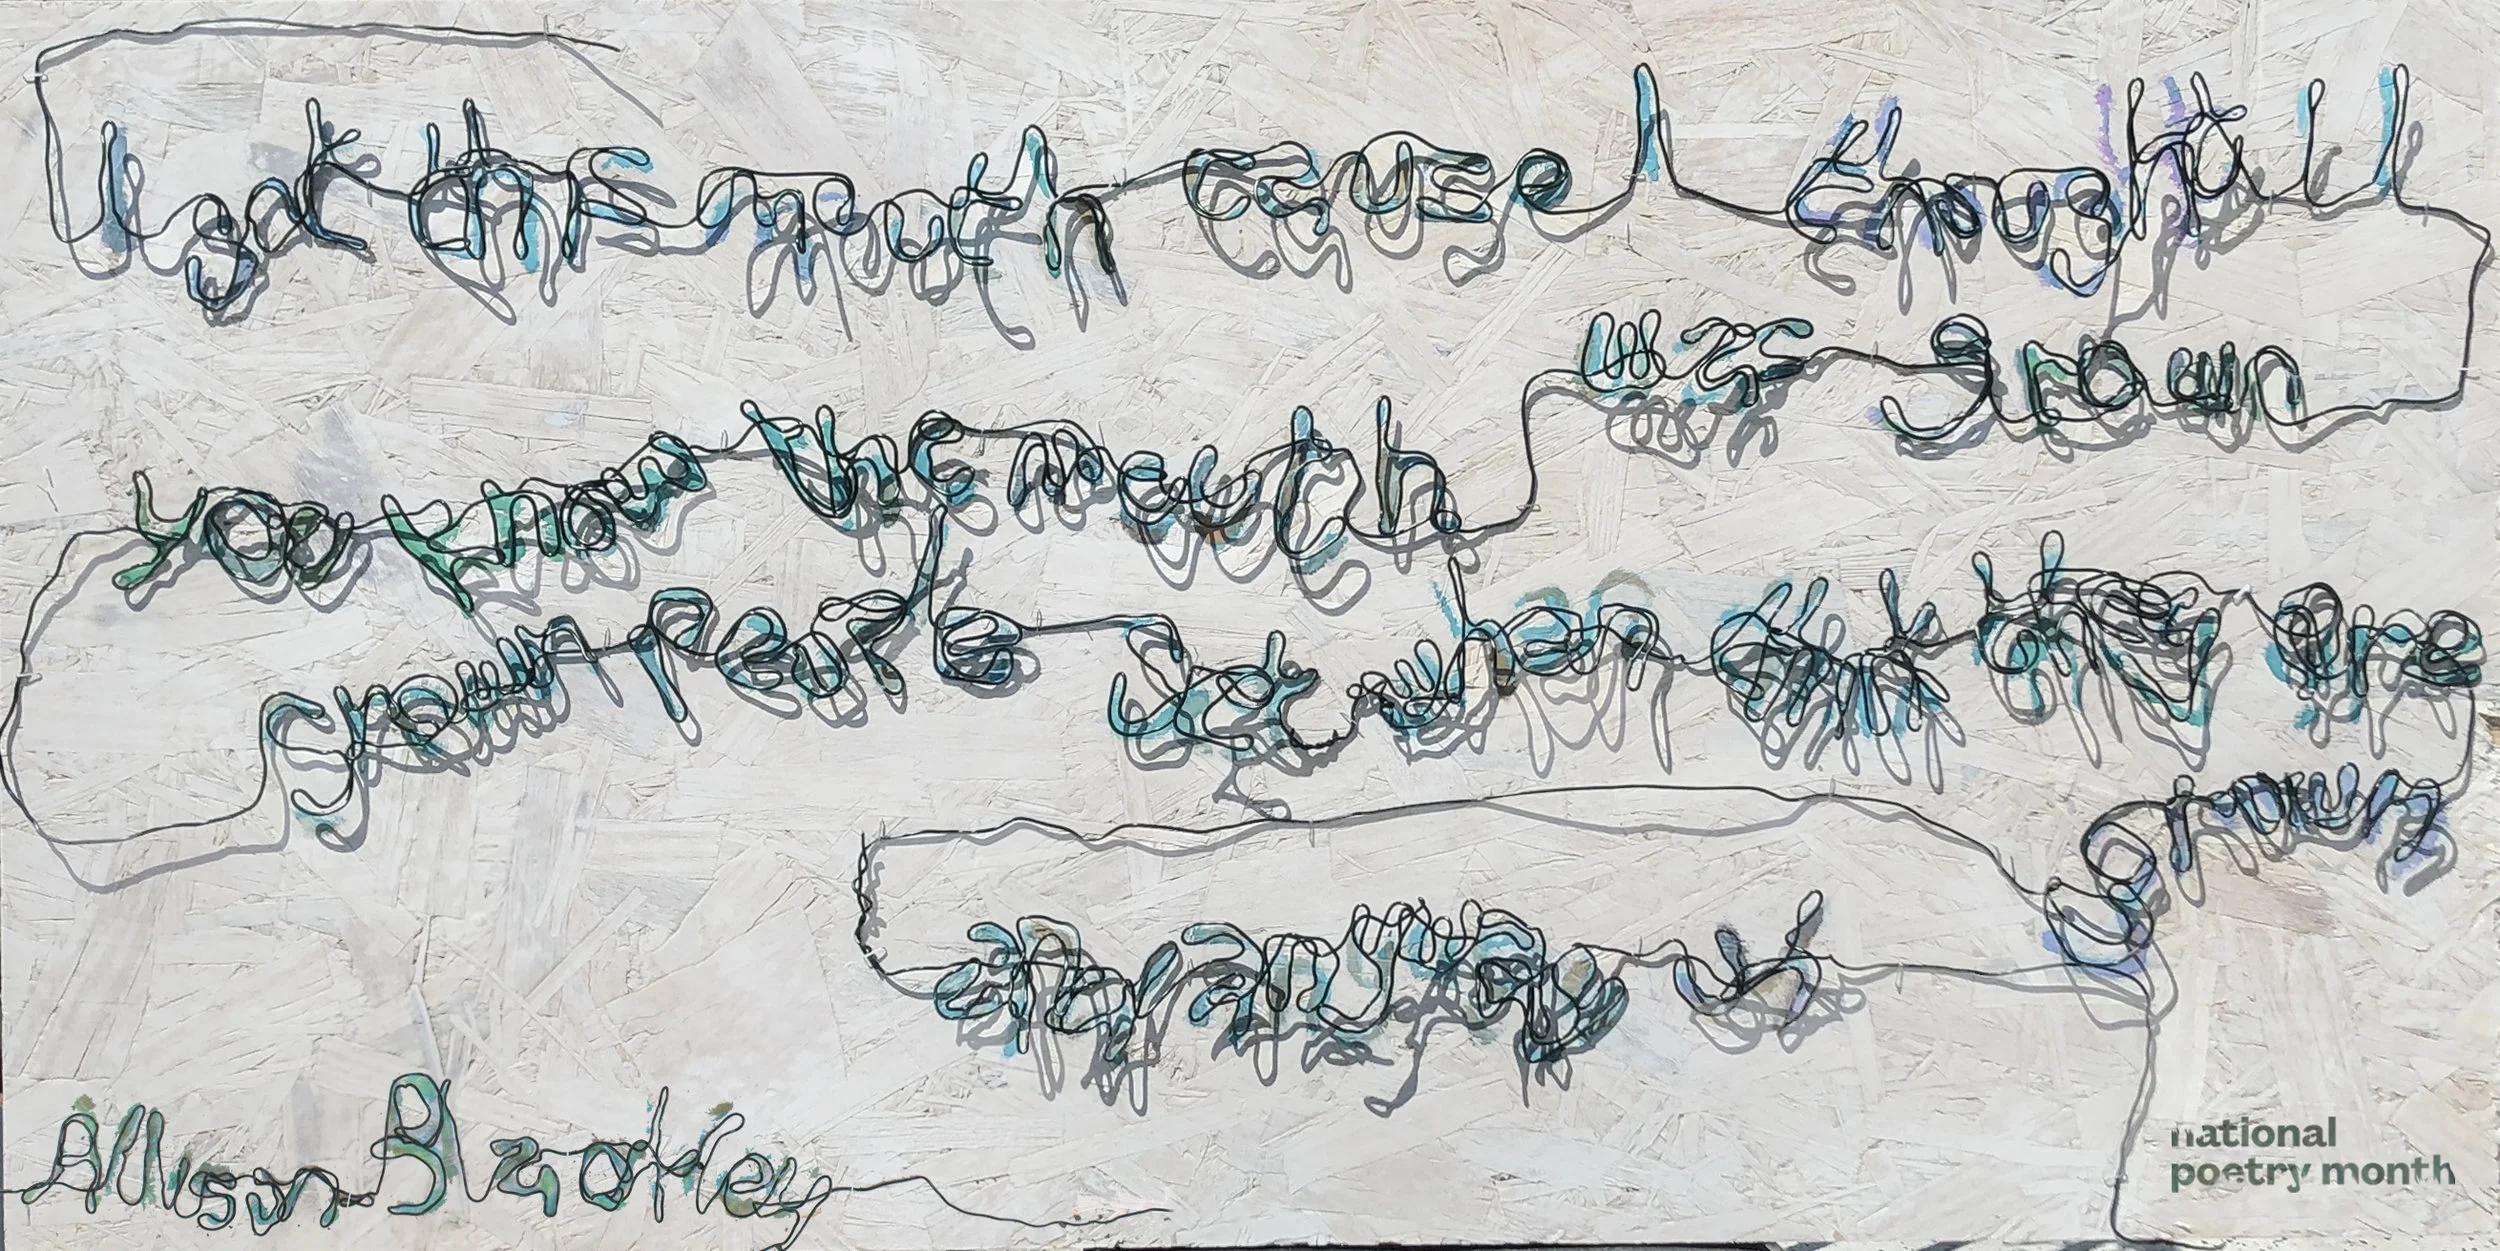 I got the mouth cause I thought I
was grown
you know the mouth
grown people get when they think they are
grown
Allison
national
poetry month